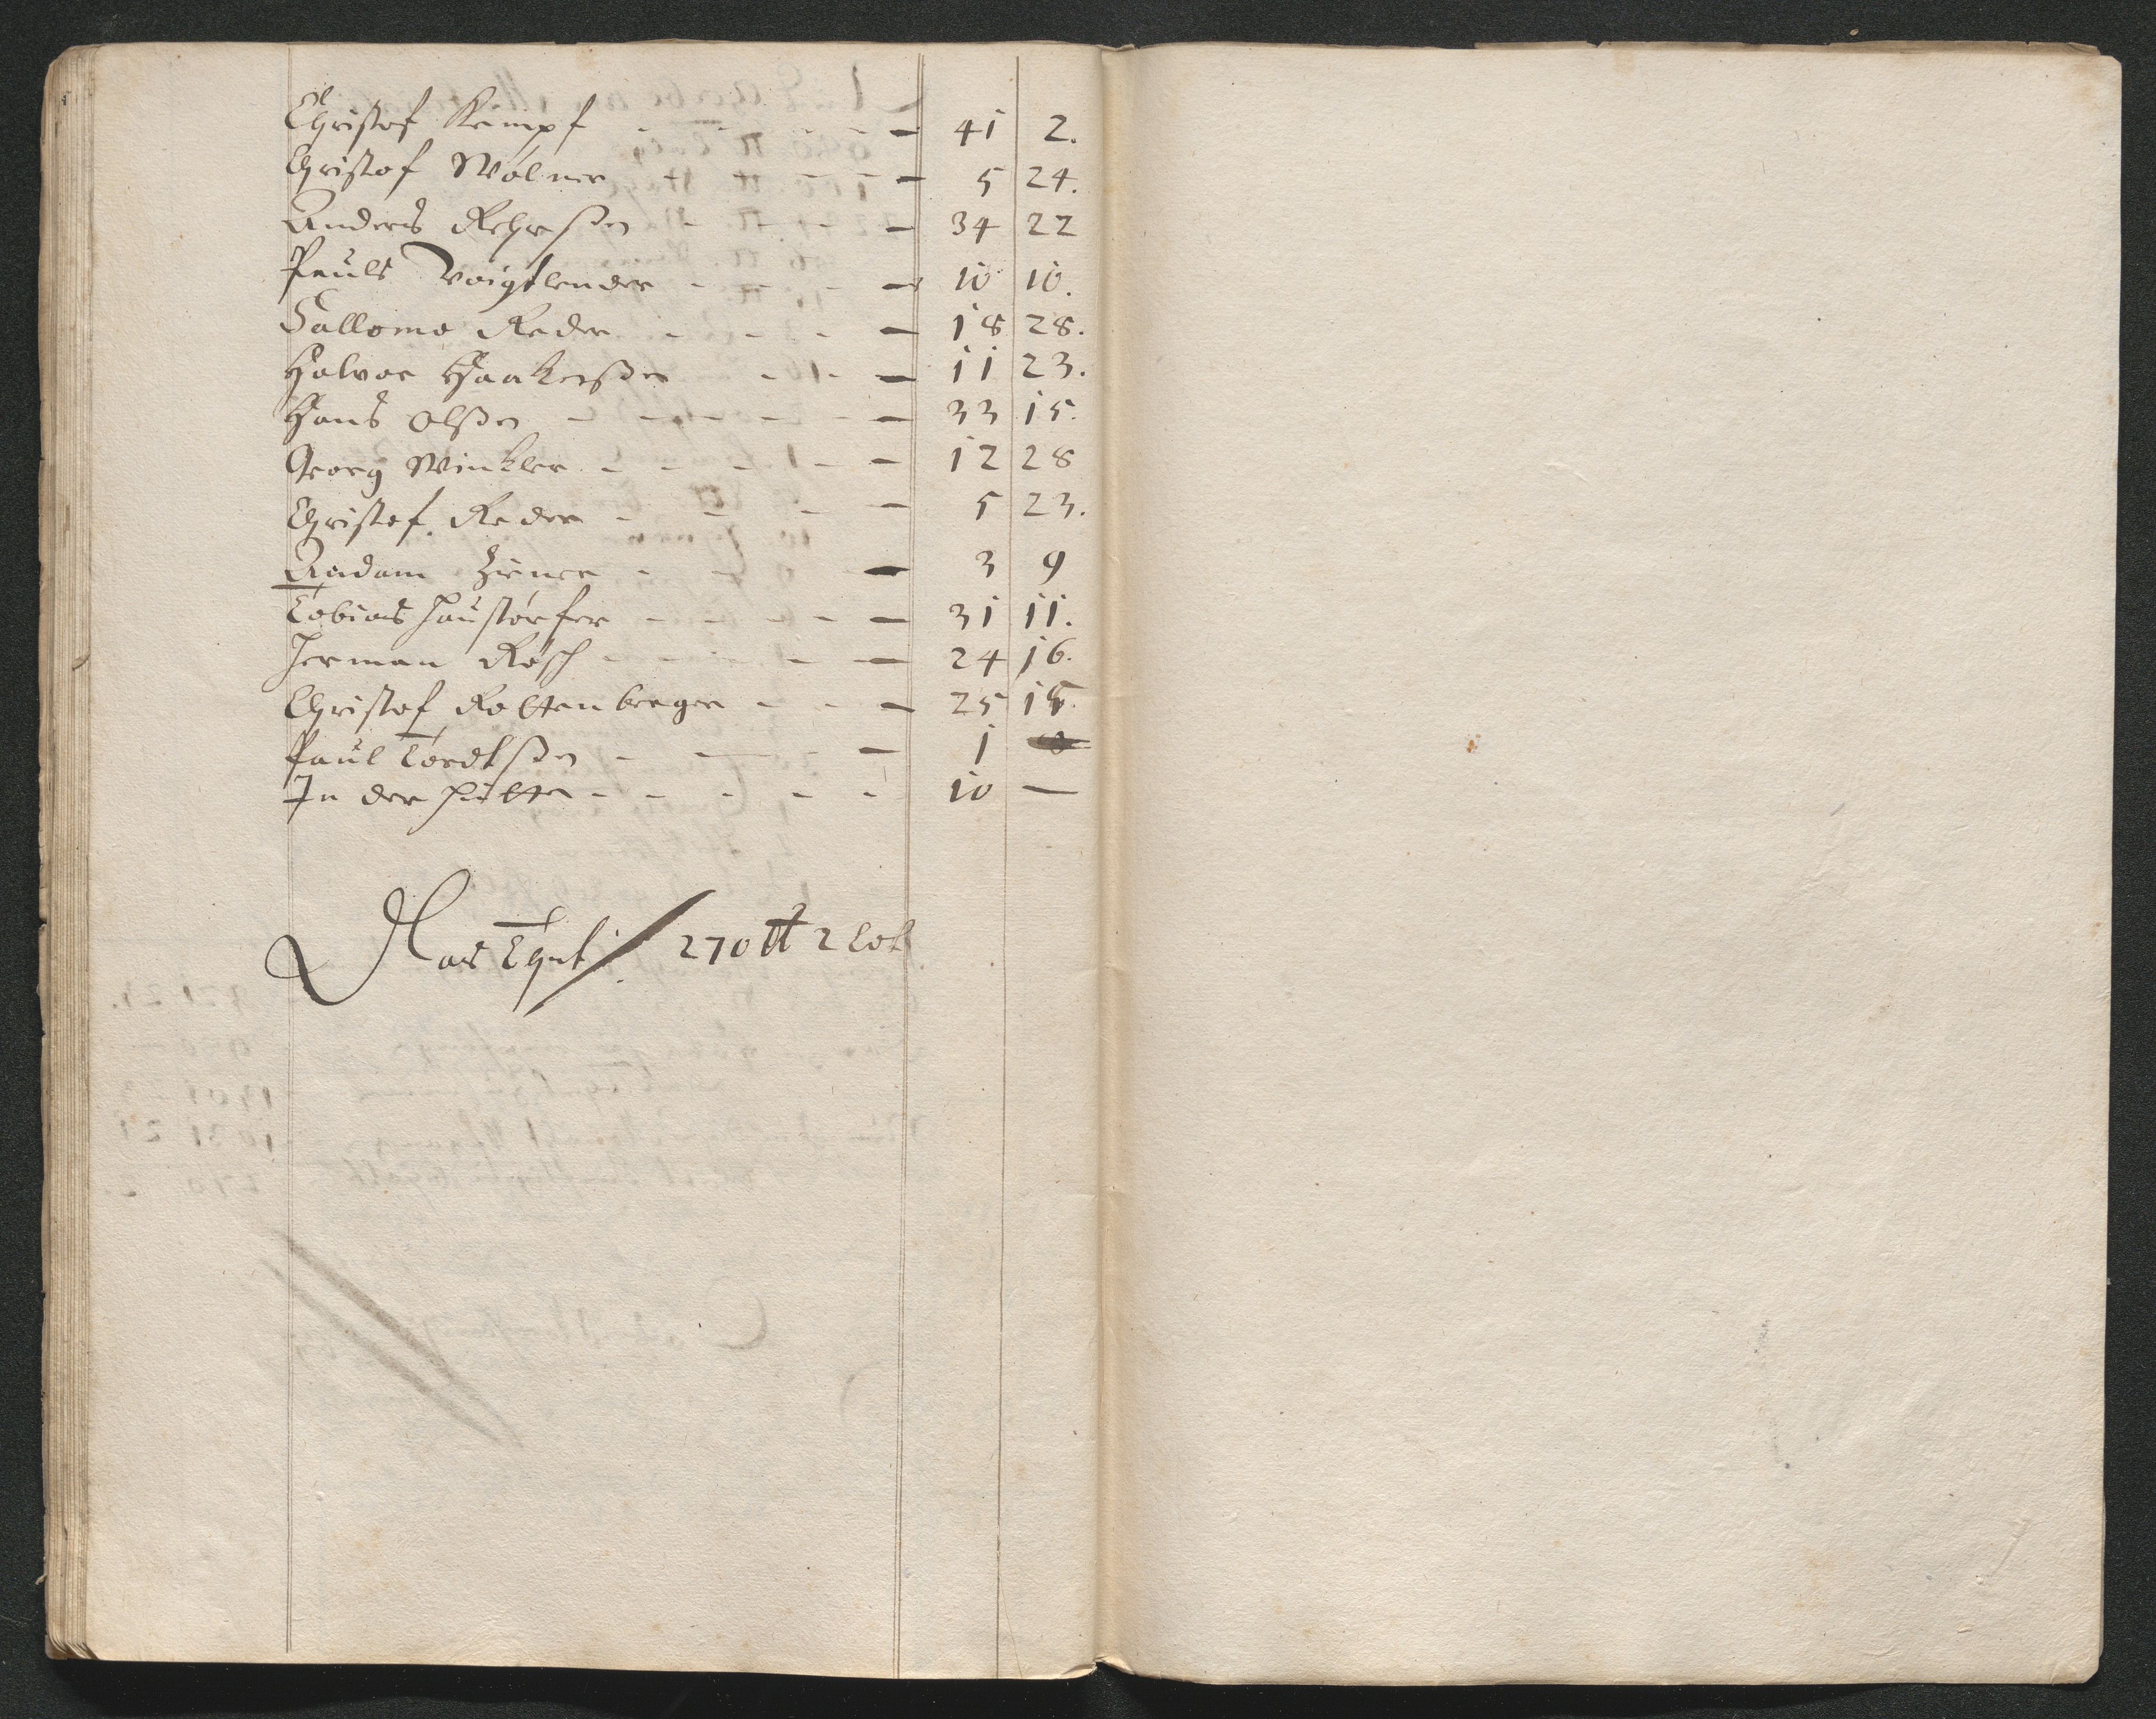 Christof Kempf - - - - - 41 2.
Christof Wølner - - - - - 5 24.
Anders Rehrsen - - - - 34 22
Pauls Voigtlender - - - - 10 10.
Sallomo Reder - - - - 18 28.
Halvor Haakensßen - - - 11 23.
Hans Olßen - - - - - - 33 15.
Georg Winkler - - - - - 12 28
Christof Reder - - - - 5 23.
Aadam Ziener - - - 3 9
Tobias Haustorfer - - - - - 31 11.
Herman Rösch - - - - - 24 16.
Christof Rottenberger - - - 25 15.
Paul Tordtßen - - - - 1
In der Hütten - - - - - 10 —
Das Thut / 270 ℔ 2 Lot